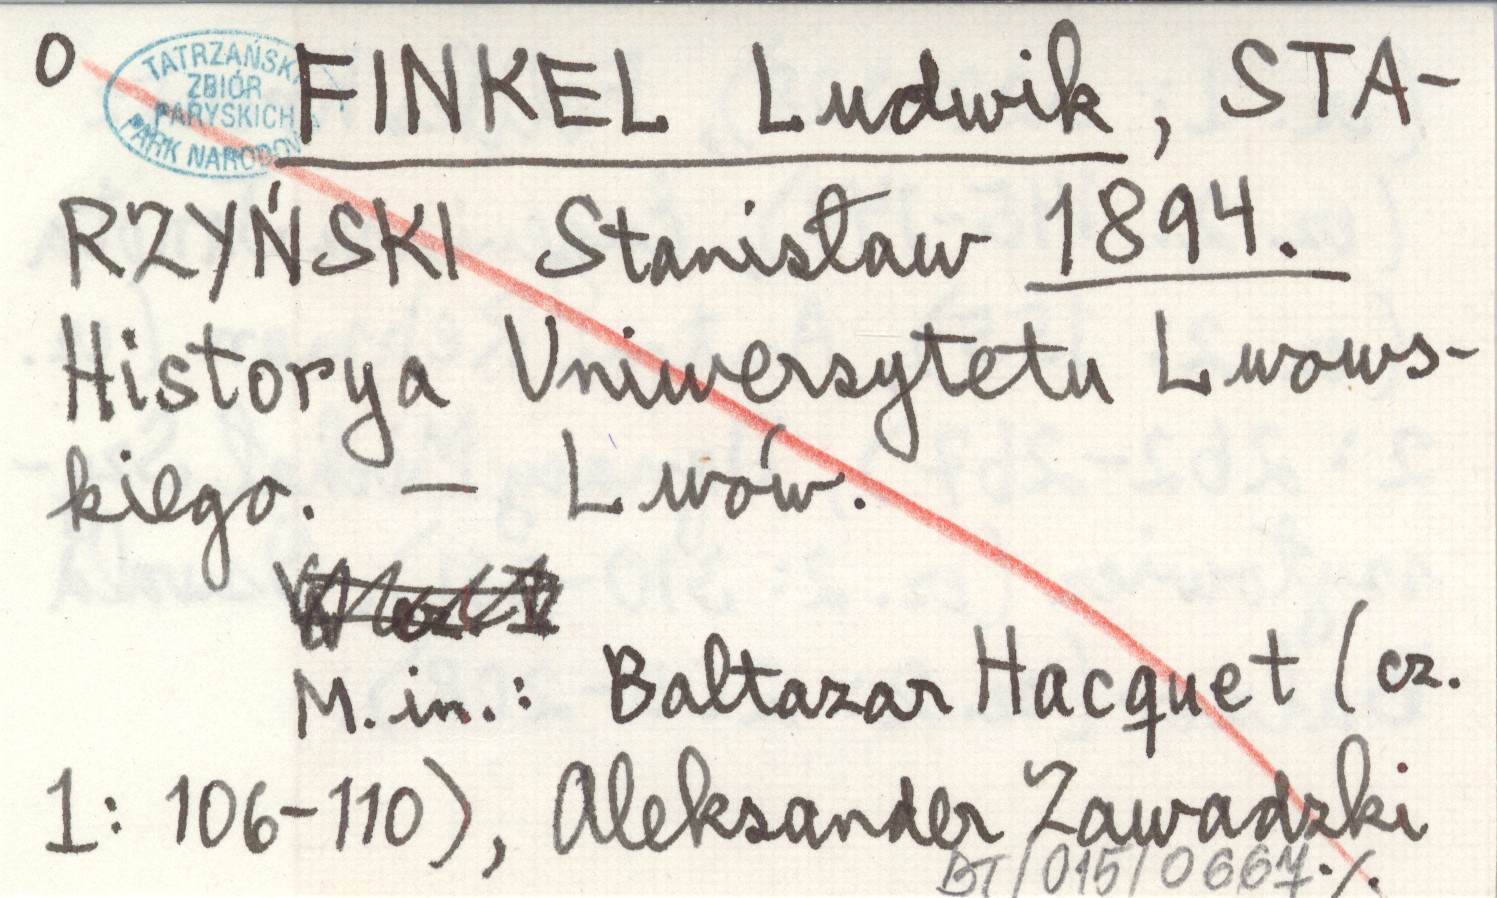 O
TATRZAŃSKI
ZBIÓR
PARYSKICH
PARK NARODOWY
FINKEL Ludwik, STA-
RZYŃSKI Stanisław 1894.
Historya Uniwersytetu Lwows-
kiego. — Lwów.
M.in.: Baltazar Hacquet (cz.
1: 106-110), Aleksander Zawadzki
BT/015/0667 ./.